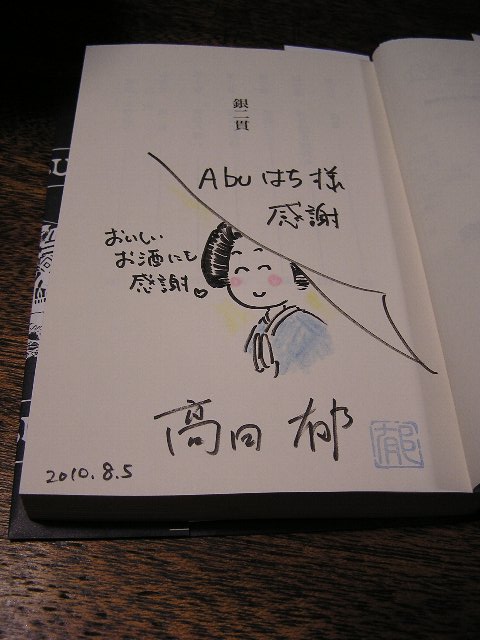 銀二貫
Abu はち 様
感謝
おいしい
お酒にも
感謝♡
髙田 郁
郁
2010.8.5